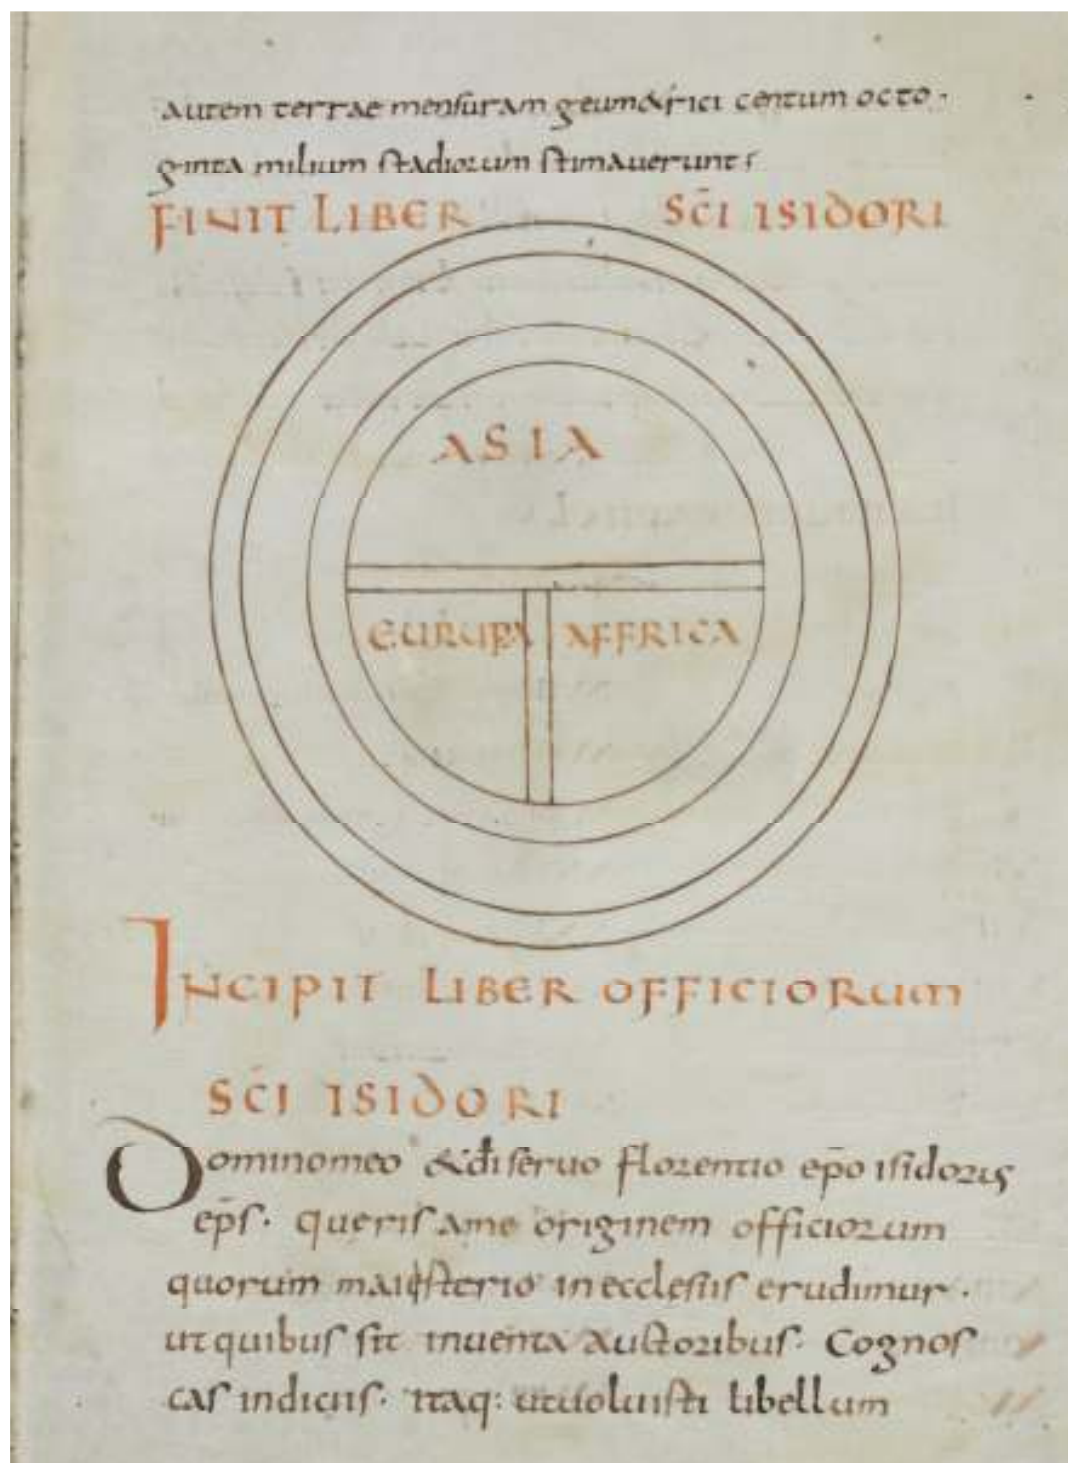 autem terrae mensuram geumetrici centum octo·
ginta milium stadiorum stimauerunt
FINIT LIBER SC̄I ISIDORI
ASIA
EURUPA AFFRICA
INCIPIT LIBER OFFICIORum
SC̄I ISIDORI
Domino meo & dī seruo florentio ep̄o isidoris
ep̄s· queris a me originem officiorum
quorum maiesterio in ecclesiis erudimur·
ut quibus sit inuenta auctoribus· Cognos
cas indiciis· itaq: ut uoluisti libellum